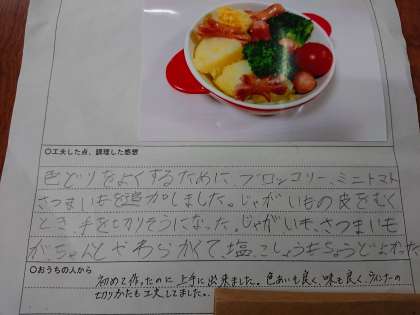 〇工夫した点、調理した感想
色どりをよくするために、ブロッコリー、ミニトマト
さつまいもを追加しました。じゃがいもの皮をむく
とき、手を切りそうになった。じゃがいも、さつまいも
が、ちゃんとやわらかくて、塩、こしょうもちょうどよかった。
〇おうちの人から
初めて作ったのに上手に出来ました。色あいも良く、味も良く、ウィンナーの
切りかたも工夫してました。